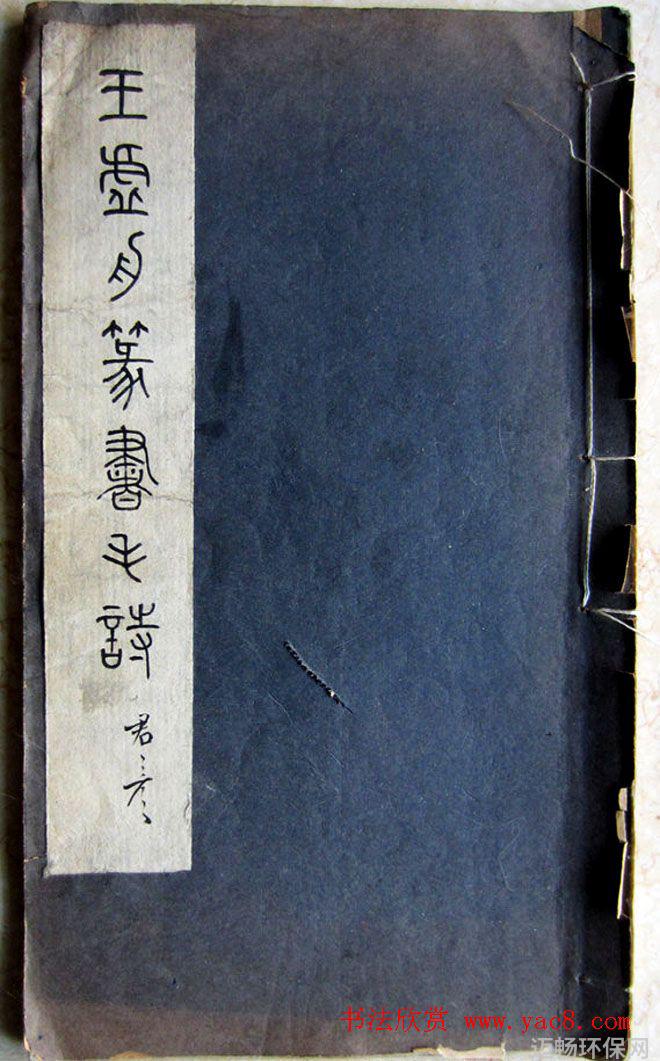 王虛舟篆書毛詩
书法欣赏 www.yac8.com
迈畅环保网